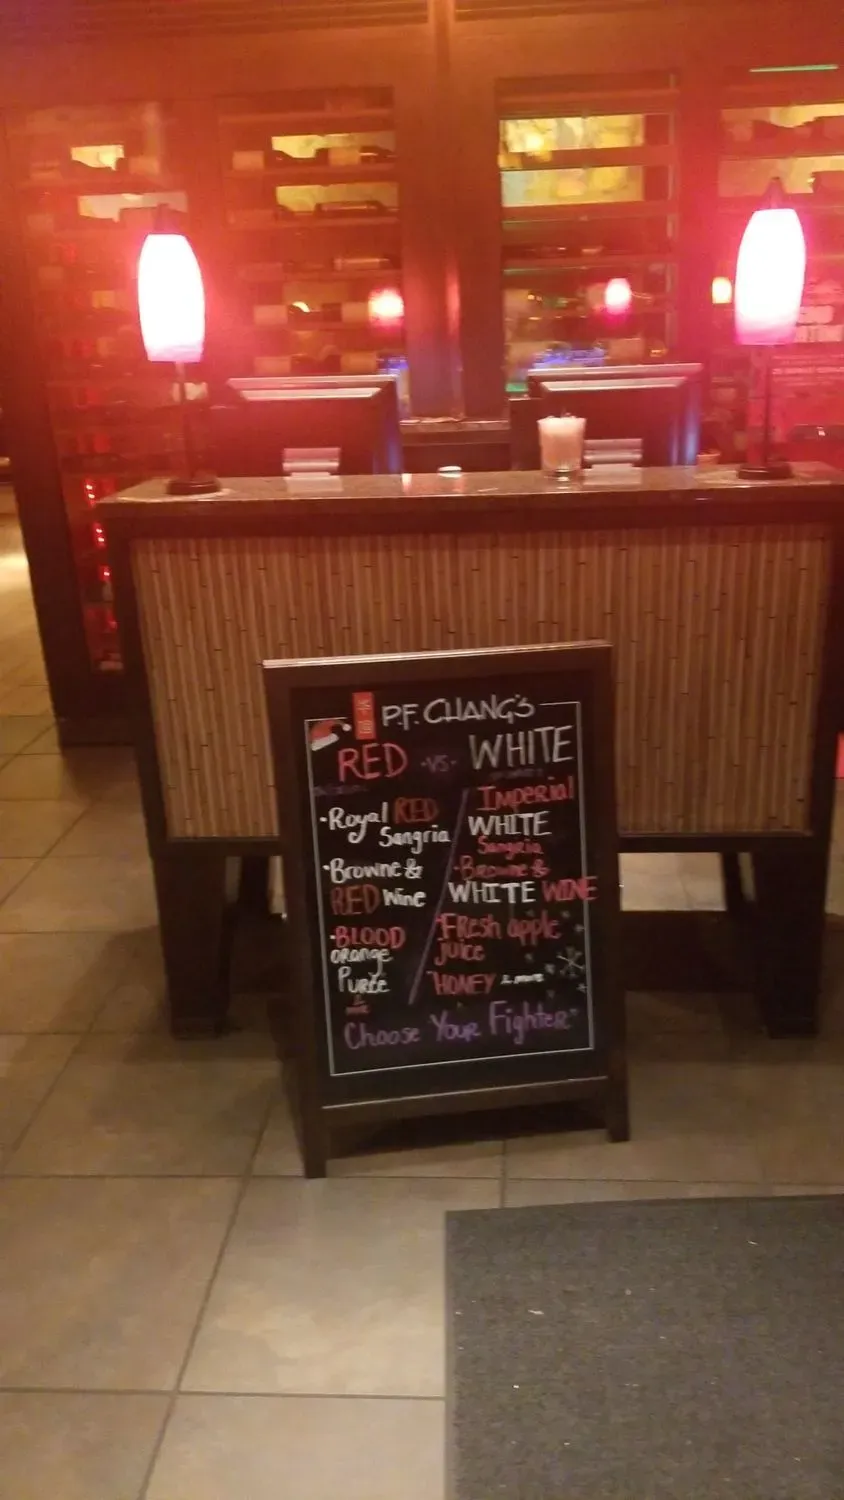 P.F. CHANG'S
RED -VS- WHITE
·Royal RED
Sangria
·Browne &
RED Wine
·BLOOD
orange
Purée
&
Imperial
WHITE
Sangria
·Browne &
WHITE WINE
·FResh apple
juice
·HONEY & more
"Choose Your Fighter"